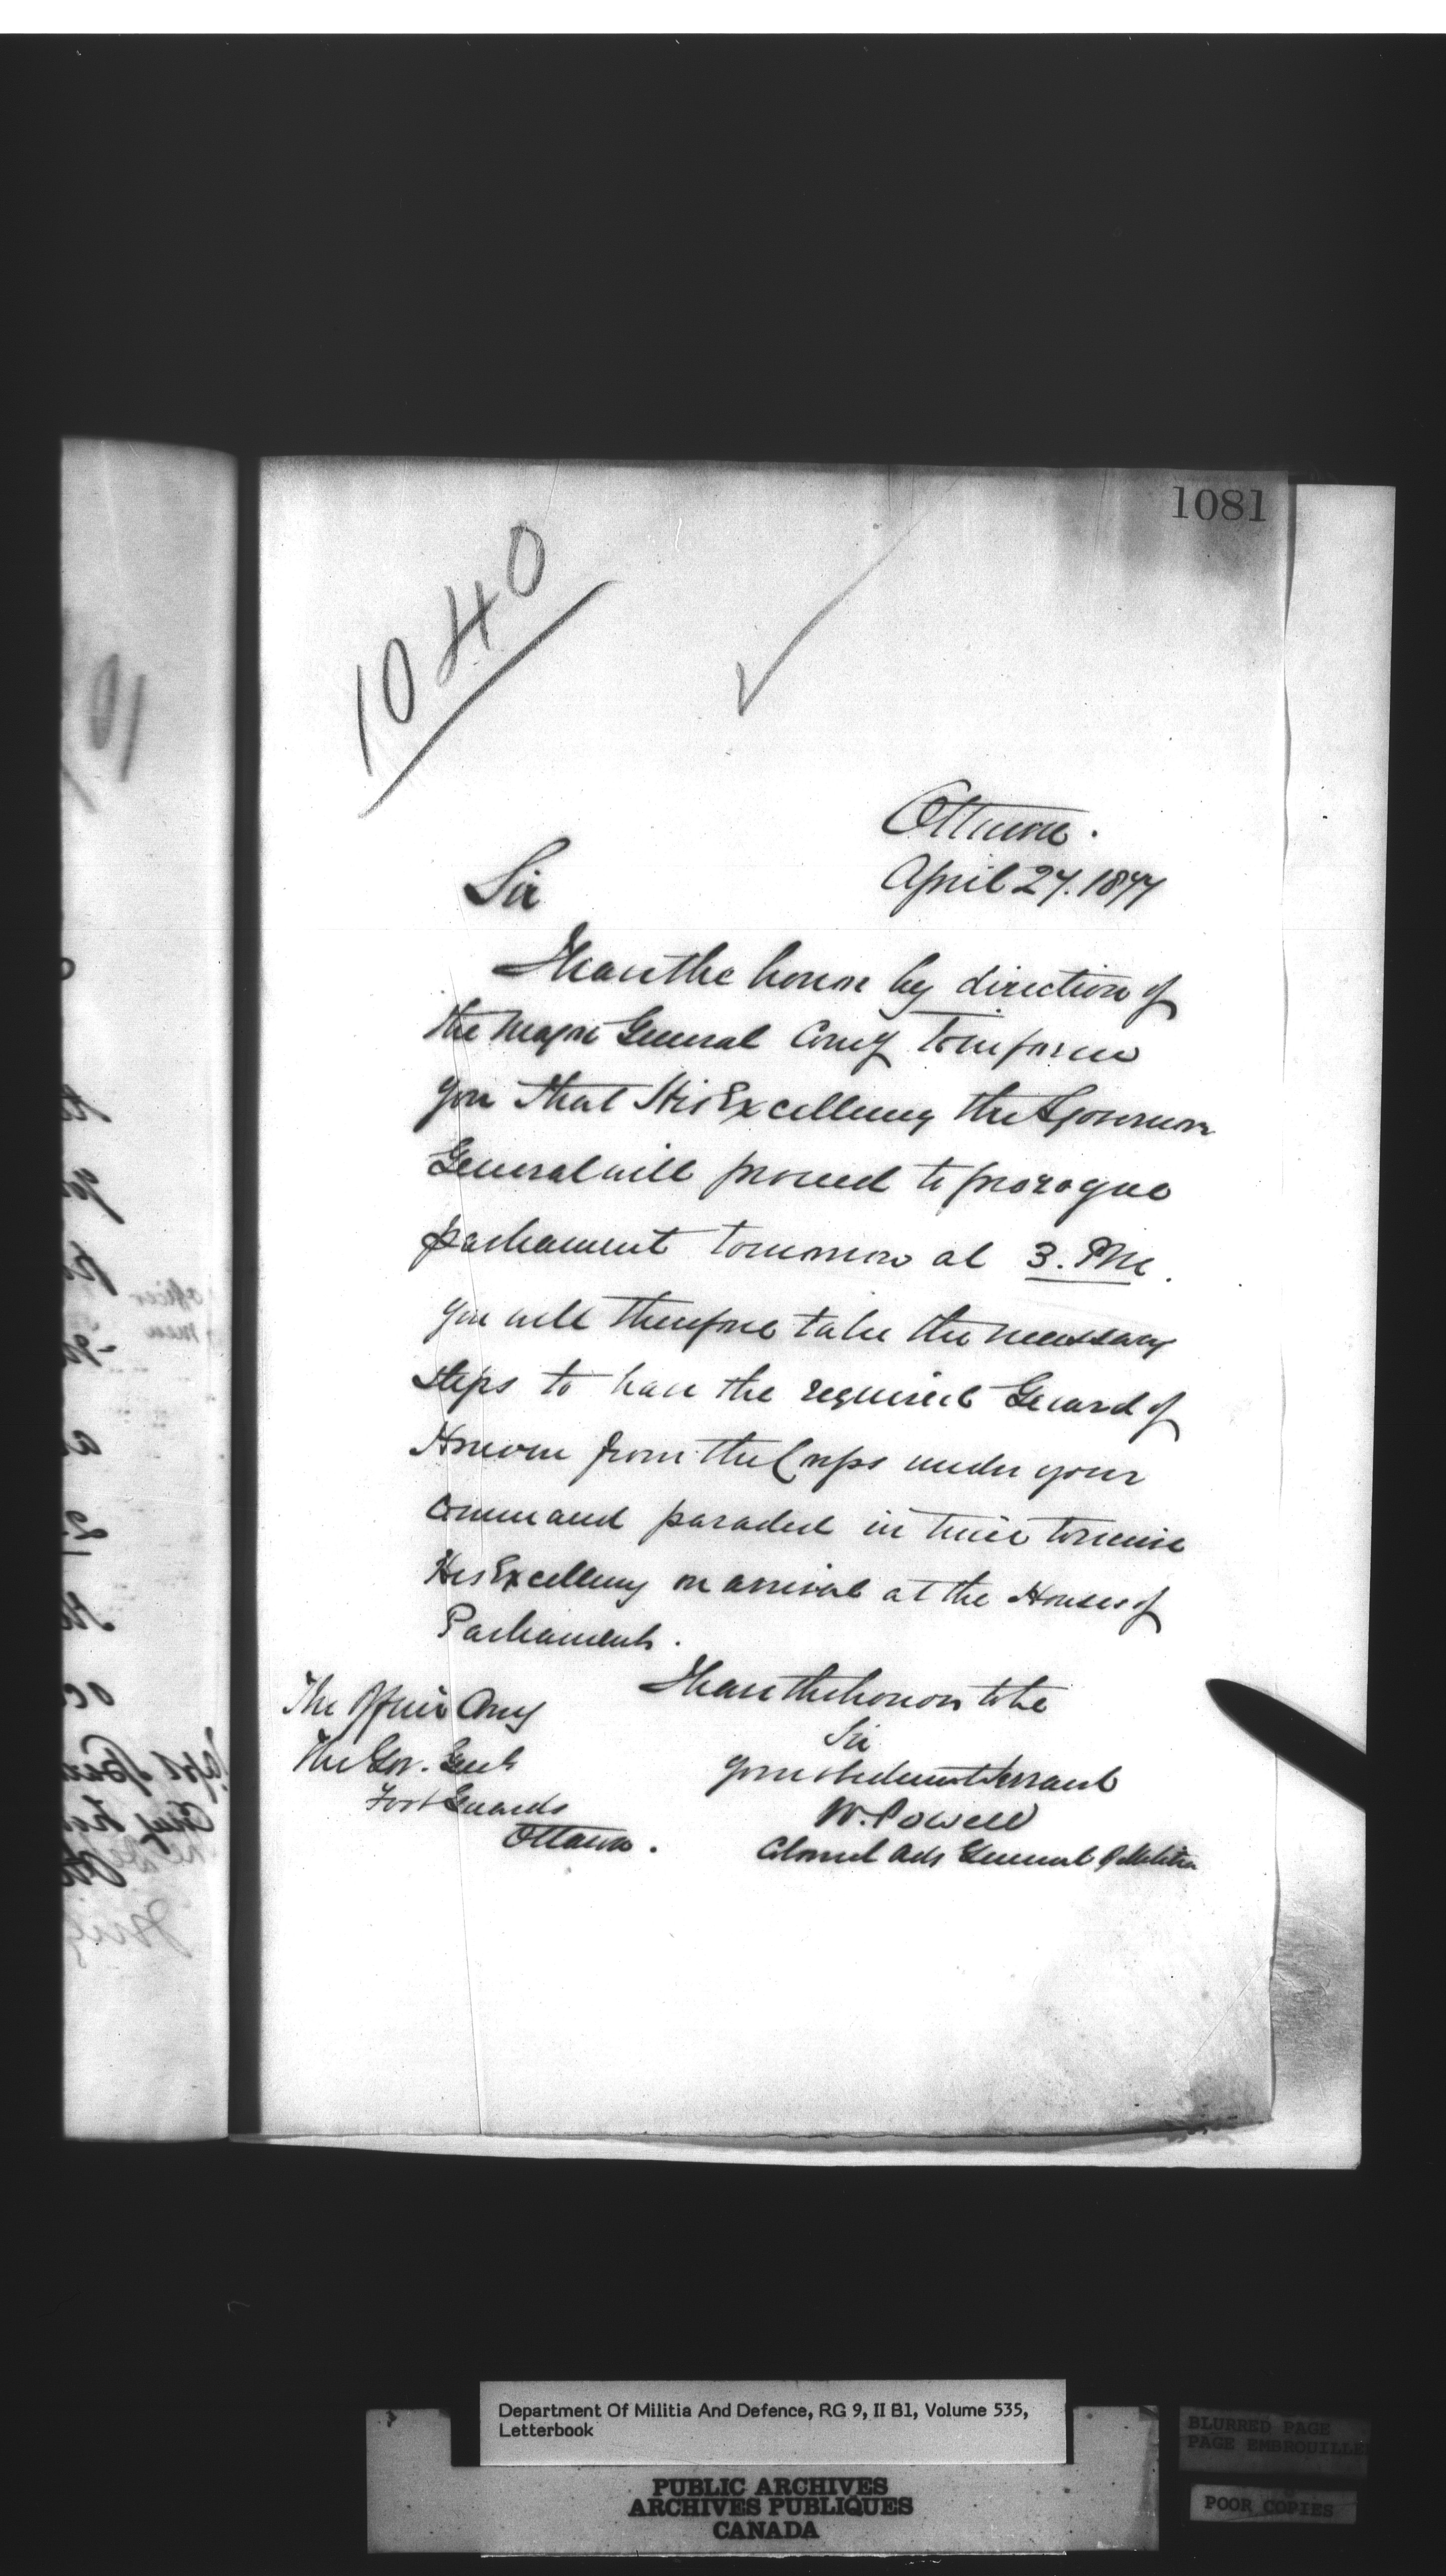 1081
1040
Ottawa.
April 27. 1877
Sir
I have the honor by direction of
the Major General Comg to inform
you that His Excellency the Governor
General will proceed to prorogue
parliament tomorrow at 3. PM.
you will therefore take the necessary
steps to have the required Guard of
Honour from the Corps under your
command paraded in time to receive
His Excellency on arrival at the Houses of
Parliament.
I have the honor to be
Sir
your obedient servant
W. Powell
Colonel Adj General of Militia
The Officer Comg
The Gov. Genls
Foot Guards
Ottawa.
Department Of Militia And Defence, RG 9, II B1, Volume 535,
Letterbook
PUBLIC ARCHIVES
ARCHIVES PUBLIQUES
CANADA
BLURRED PAGE
PAGE EMBROUILLE
POOR COPIES